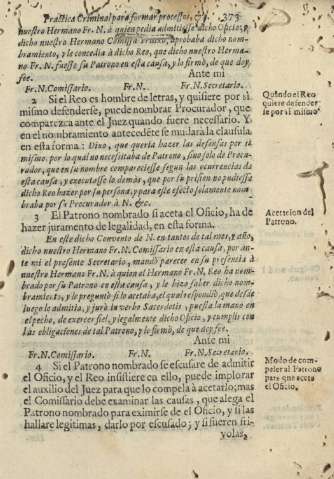 Practica Criminal para formar processos, &c. 373
nuestro Hermano Fr. N. à quien pedia admitiesse dicho Oficio; y
dicho nuestro Hermano Comissario aprobaba dicho nom-
bramiento, y le concedia à dicho Reo, que dicho nuestro Herma-
no Fr. N. fuesse su Patrono en esta causa, y lo firmò, de que doy
fee. Ante mi
Fr. N. Comissario. Fr. N. Fr. N. Secretario.
2 Si el Reo es hombre de letras, y quisiere por si
mismo defenderse, puede nombrar Procurador, que
comparezca ante el Juez quando fuere necessario. Y
en el nombramiento antecedẽte se mudarà la clausula
en esta forma: Dixo, que queria hazer las defensas por si
mismo, por lo qual no necessitaba de Patrono, sino solo de Procu-
rador, que en su nombre pareciesse segun las ocurrencias de
esta causa, y executasse lo demàs, que por su prision no pudiesse
dicho Reo hazer por su persona, y para este efecto solamente nom-
braba por su Procurador à N. &c.
Quando el Reo
quiere defender
se por si mismo
3 El Patrono nombrado si aceta el Oficio, ha de
hazer juramento de legalidad, en esta forma.
Acetacion del
Patrono.
En este dicho Convento de N. en tantos de tal mes, y año,
dicho nuestro Hermano Fr. N. Comissario en esta causa, por an-
te mi el presente Secretario, mandò parecer en su presencia à
nuestro Hermano Fr. N. à quien el Hermano Fr. N. Reo ha nom-
brado por su Patrono en esta causa, y le hizo saber dicho nom-
bramiento, y le preguntò si lo acetaba, el qual respondiò, que desde
luego lo admitia, y jurò in verbo Sacerdotis, puesta la mano en
el pecho, de exercer fiel, y legalmente dicho Oficio, y cumplir con
las obligaciones de tal Patrono, y lo firmò, de que doy fee.
Ante mi
Fr. N. Comissario. Fr. N. Fr. N. Secretario.
4 Si el Patrono nombrado se escusare de admitir
el Oficio, y el Reo insistiere en ello, puede implorar
el auxilio del Juez para que lo compela à acetarlo; mas
el Comissario debe examinar las causas, que alega el
Patrono nombrado para eximirse de el Oficio, y si las
hallare legitimas, darlo por escusado; y si fueren fri-
volas,
Modo de com-
peler al Patrono
para que acete
el Oficio.